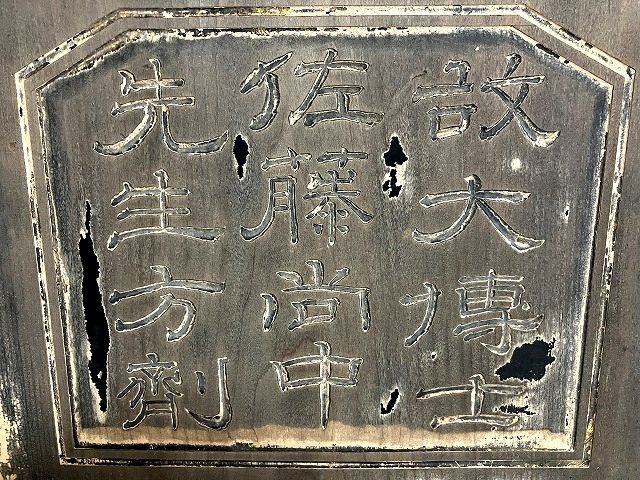 故大博士
佐藤尚中
先生方劑